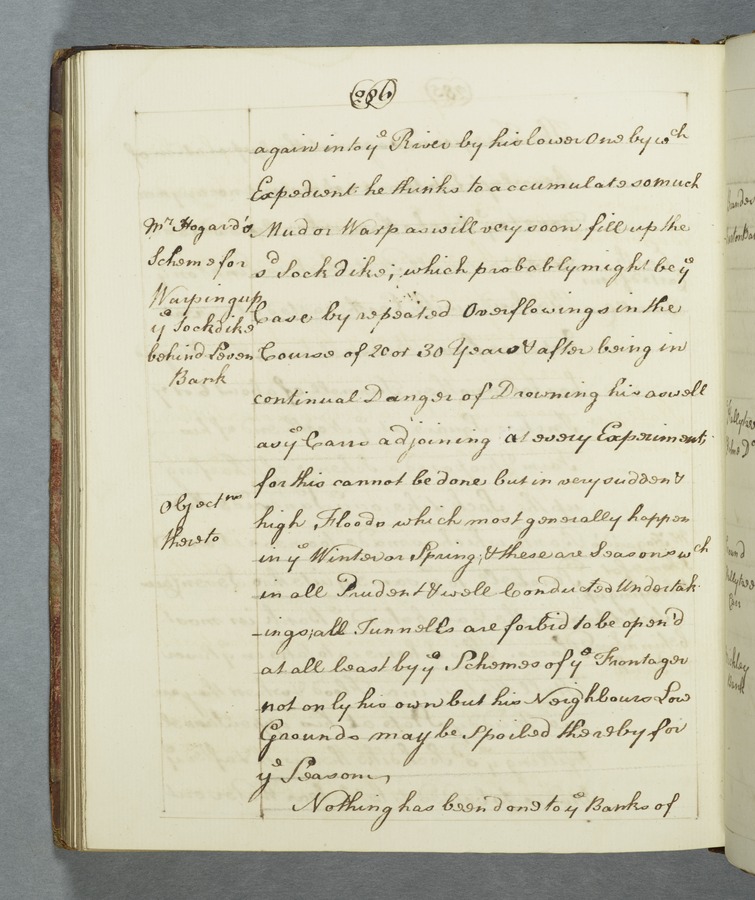 286
again into yͤ River by his lower One by wͨʰ
Expedient he thinks to accumulate so much
Mud or Warp as will very soon fill up the
sᵈ Sock dike; which probably might be yͤ
Case by repeated Overflowings in the
Course of 20 or 30 Years & after being in
continual Danger of Drowning his as well
as yͤ Carrs adjoining at every Experiment;
for this cannot be done but in very sudden &
high Floods which most generally happen
in yͤ Winter or Spring; & these are Seasons wͨʰ
in all Prudent & well Conducted Undertak
-ings; all Tunnells are forbid to be open'd
at all least by yͤ Schemes of yͤ Frontager
not only his own but his Neighbours Low
Grounds may be Spoiled thereby for
yͤ Season,
Nothing has been done to yͤ Banks of
Mʳ Hogard's
Scheme for
Warping up
yͤ Sockdike
behind Leven
Bank
Objectⁿˢ
thereto